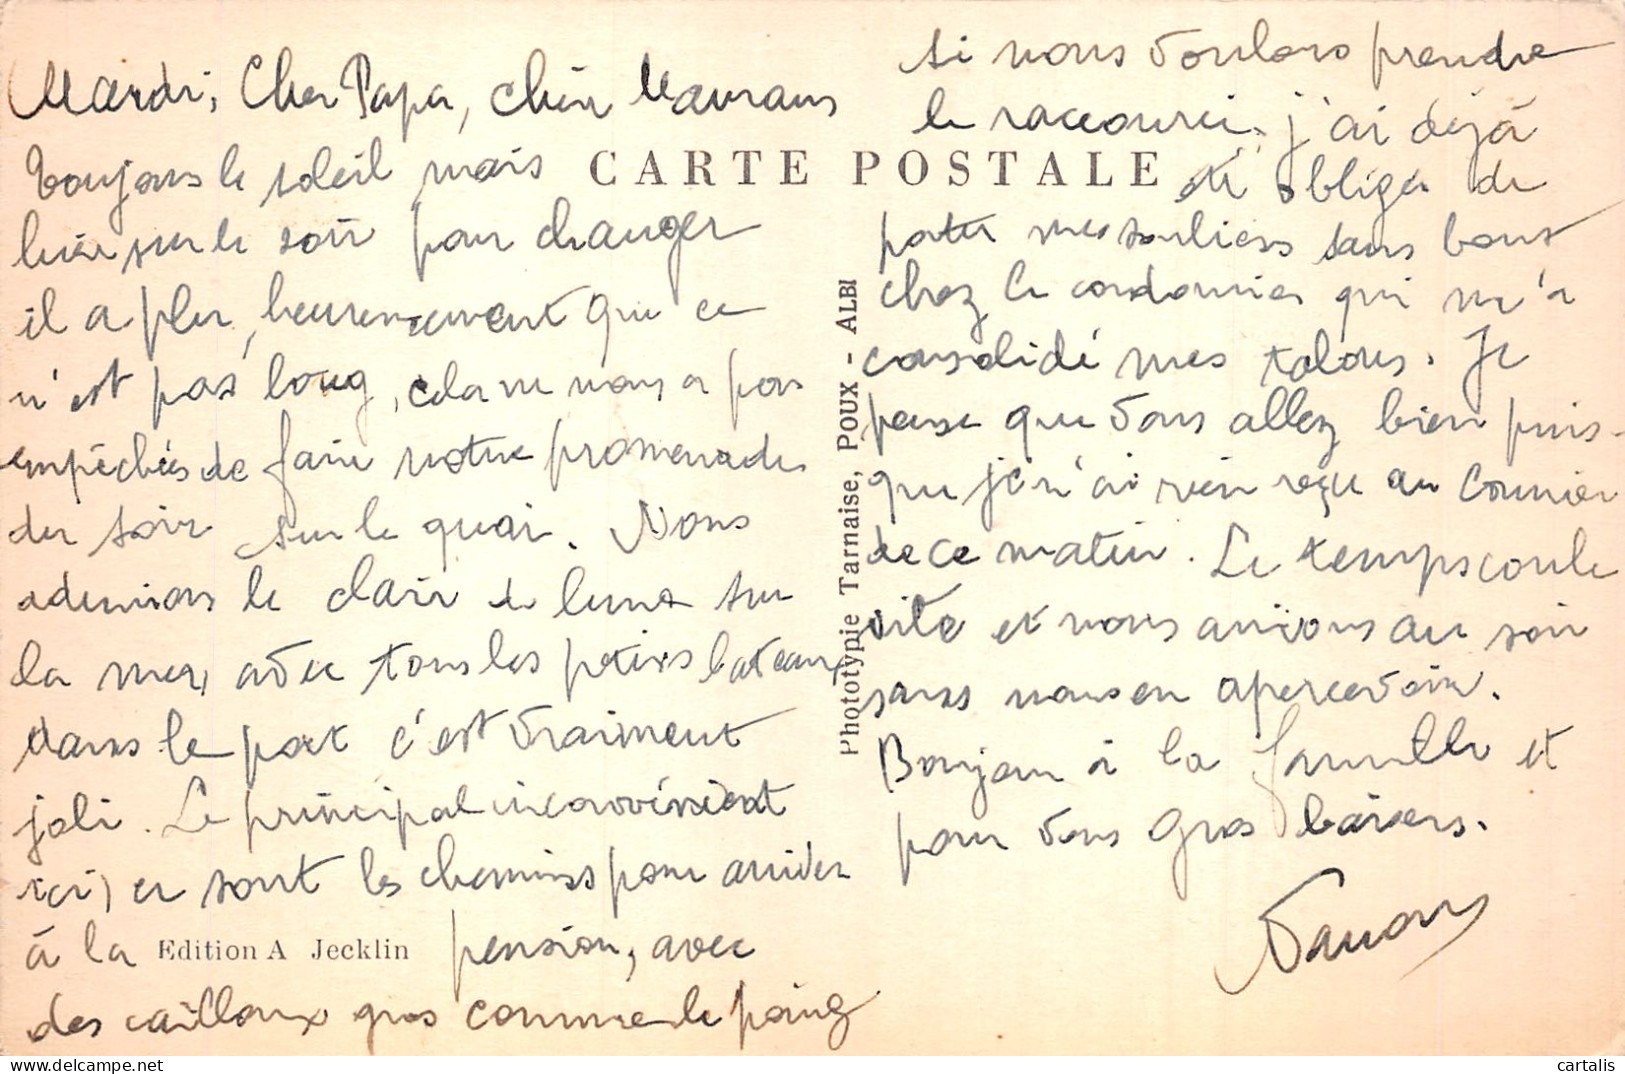 Mardi, Cher Papa, chère Maman
toujours le soleil mais
hier sur le soir pour changer
il a plu, heureusement que ce
n'est pas long, cela ne nous a pas
empêchés de faire notre promenade
du soir sur le quai. Nous
admirions le clair de lune sur
la mer, avec tous les petits bateaux
dans le port c'est vraiment
joli. Le principal inconvénient
ici, ce sont les chemins pour arriver
à la pension, avec
des cailloux gros comme le poing
si nous voulons prendre
le raccourci, j'ai déjà
été obligé de
porter mes souliers sans bout
chez le cordonnier qui m'a
consolidé mes talons. Je
pense que vous allez bien puis-
que je n'ai rien reçu au courrier
de ce matin. Le temps coule
vite et nous arrivons au soir
sans nous en apercevoir.
Bonjour à la famille et
pour vous gros baisers.
CARTE POSTALE
Phototypie Tarnaise, POUX - ALBI
Edition A Jecklin
cartalis